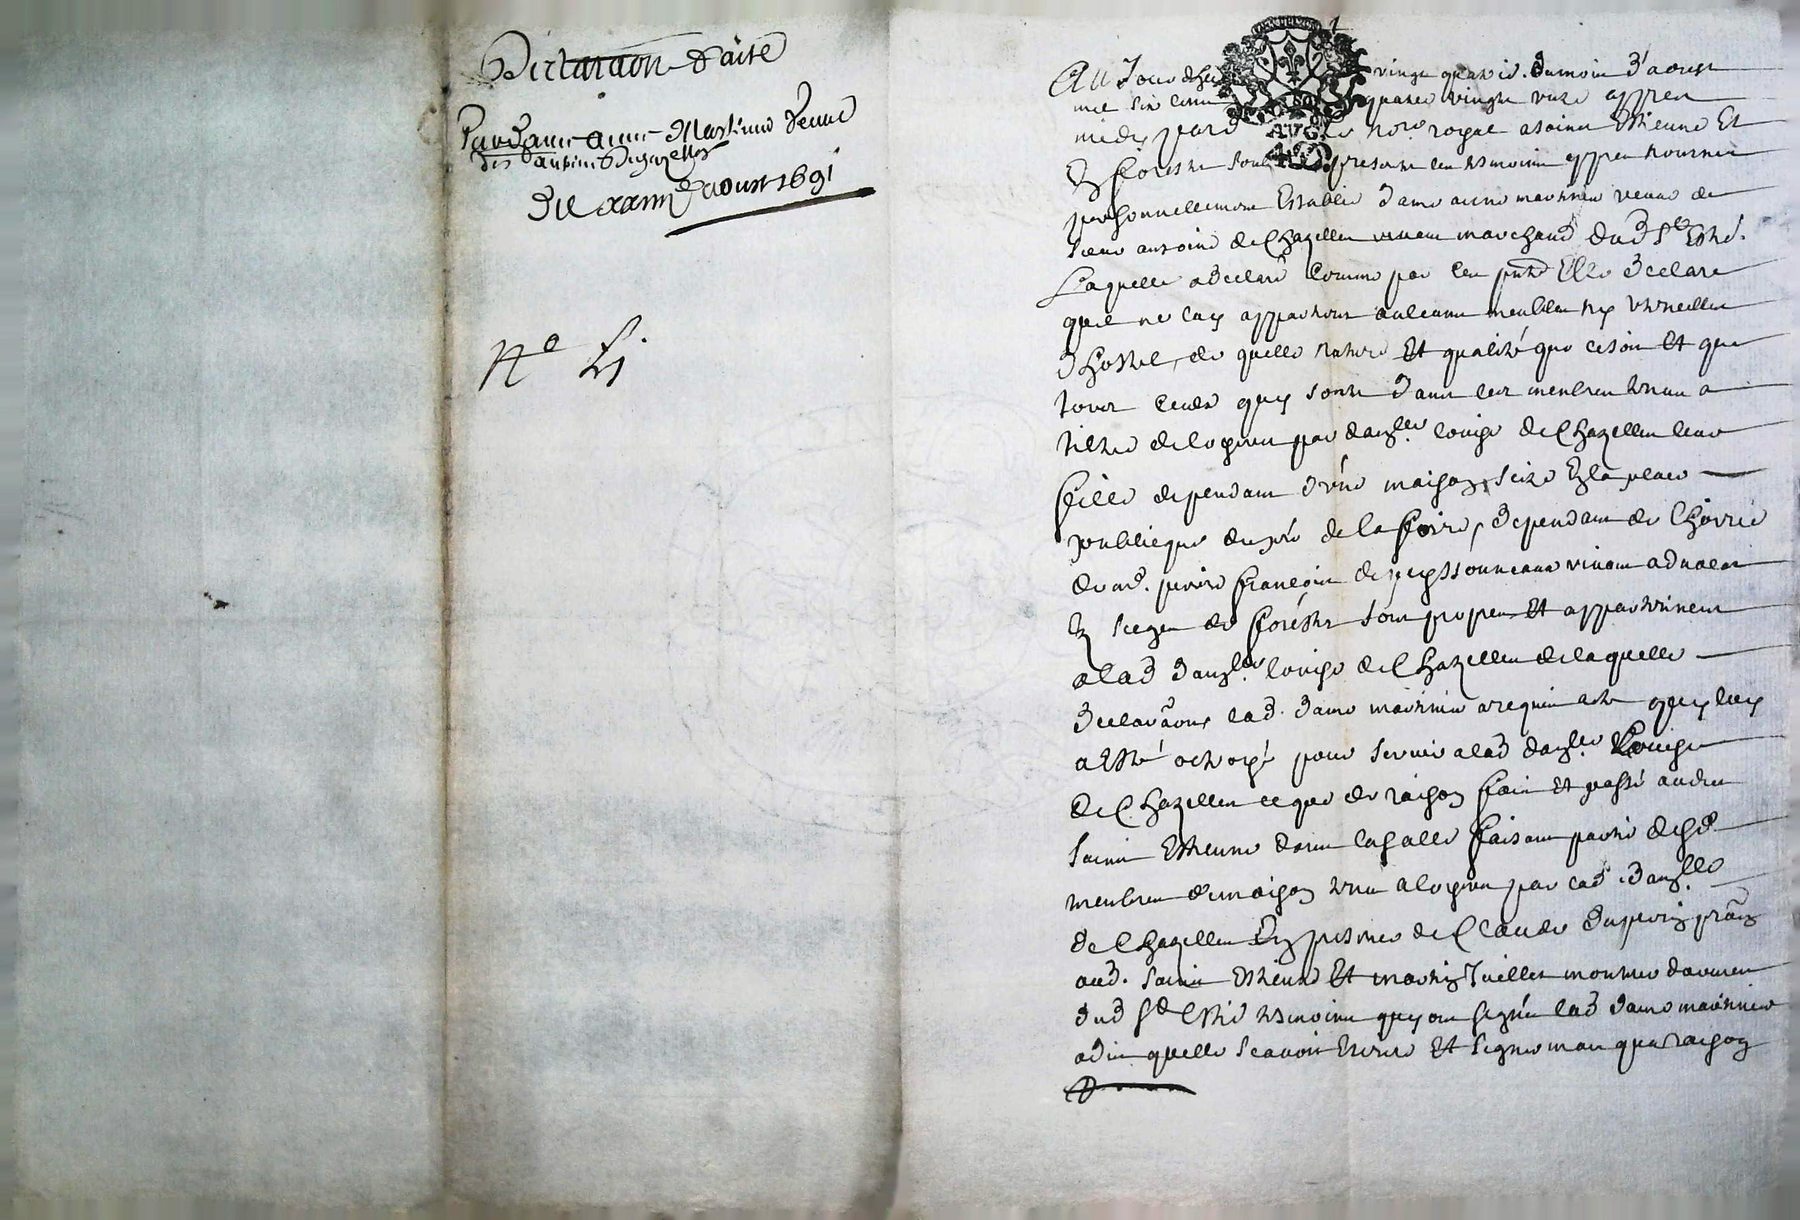 Declaraon faite
Par dame anne Martinier veuve
des antoine Dechazelles
Du xxiiij d'aoust 1691
N° Lj
Au Jourdhuy vingt quatrie. du mois d'aoust
mil six cens quatre vingts unze appres
midy pard le no.re royal a sainct Estienne Et
En forestz soub presente les tesmoins appres nommes
personnellement Establie dame anne martinier veuve de
sieur antoine de Chazelles vivant marchand dud St Esthe.
Laquelle a declaré comme par ces pntes Elle declare
quil ne luy appartient aulcuns meubles ny Ustencilles
d'hostel, de quelle nature Et qualité que ce soit Et que
tout ceulx quy sont dans les membres tenus a
tiltre de loyer par dauzlle. louise de Chazelles leur
fille dependant d'une maison, scize En la place
publicque du pré de la foire, dependant de l'hoirie
de me. pierre francois de peyssonneaux vivant advocat
En sieges de forestz sont propres Et appartiennent
a lad dauzlle. louise de Chazelles de laquelle
declaraon lad. dame martinier a requis acte quy luy
a esté octroyé pour servir a lad dauzlle Louise
de Chazelles ce que de raison fait Et passé audict
sainct Estienne dans la salle faisant partie desd.
membres de maison tenus a loyer par lad. dauzlle
de Chazelles En presence de Claude Duperin pratn
aud. sainct Estienne Et martin Juillet monteur d'armes
dud St Esthe tesmoins quy ont signés lad dame martinier
a dit quelle scavoit Escrire Et signer mais que raison